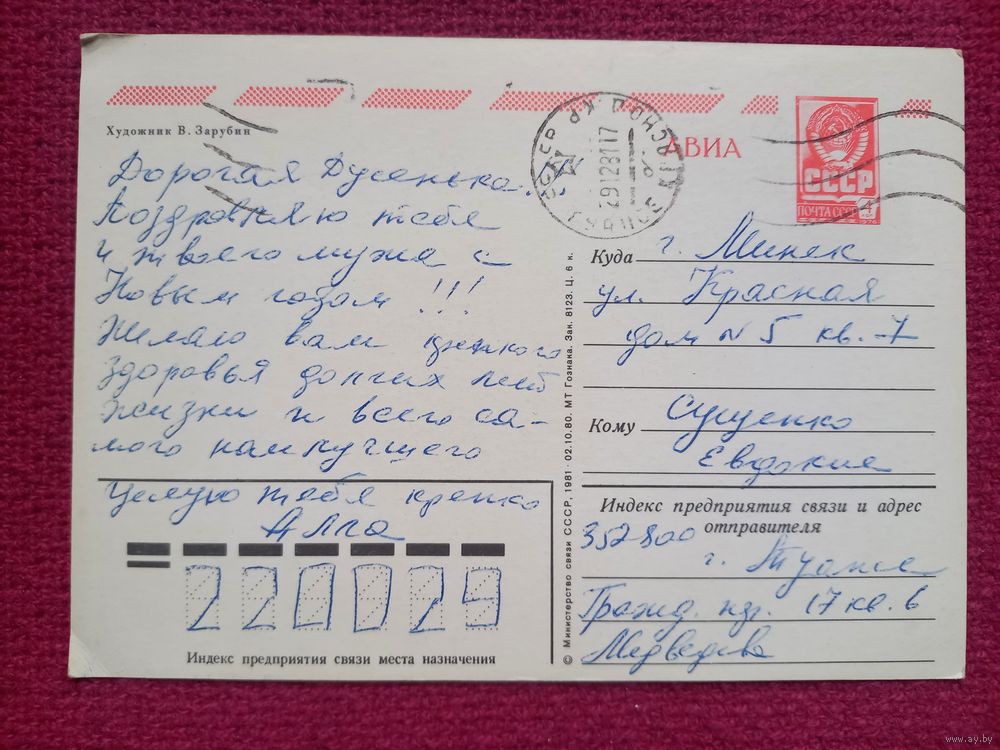 Художник В. Зарубин
АВИА
СССР
ПОЧТА СССР
29 12 81 17
Дорогая Дусенька
Поздравляю тебя
и твоего мужа с
Новым годом !!!
Желаю вам
здоровья долгих лет
жизни и всего са-
мого наилучшего
Целую тебя крепко
Алла
Куда г. Минск
ул. Красная
дом N 5 кв. - 7
Кому Сущенко
Евдокие
Индекс предприятия связи и адрес
отправителя
352800
г. Туапсе
Гражд. 17 кв. 6
Медведева
220029
Индекс предприятия связи места назначения
© Министерство связи СССР, 1981 · 02.10.80. МТ Гознака. Зак. 8123. Ц. 6 к.
www.ay.by